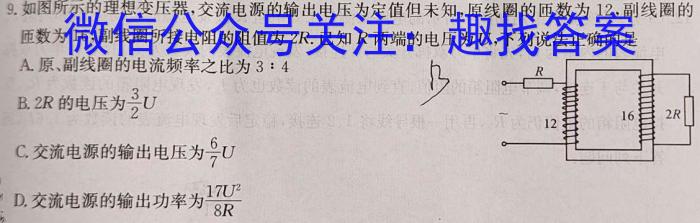 9.如图所示的理想变压器,交流电源的输出电压为定值但未知,原线圈的匝数为12,副线圈的
匝数为 副线圈所接电阻的阻值为2R.已知 两端的电压为 下列说法正确的是
微信公众号关注:趣找答案
A.原、副线圈的电流频率之比为3:4
B.2R的电压为\frac{3}{2}U
C.交流电源的输出电压为\frac{6}{7}U
D.交流电源的输出功率为\frac{17U^2}{8R}
R
12
16
2R